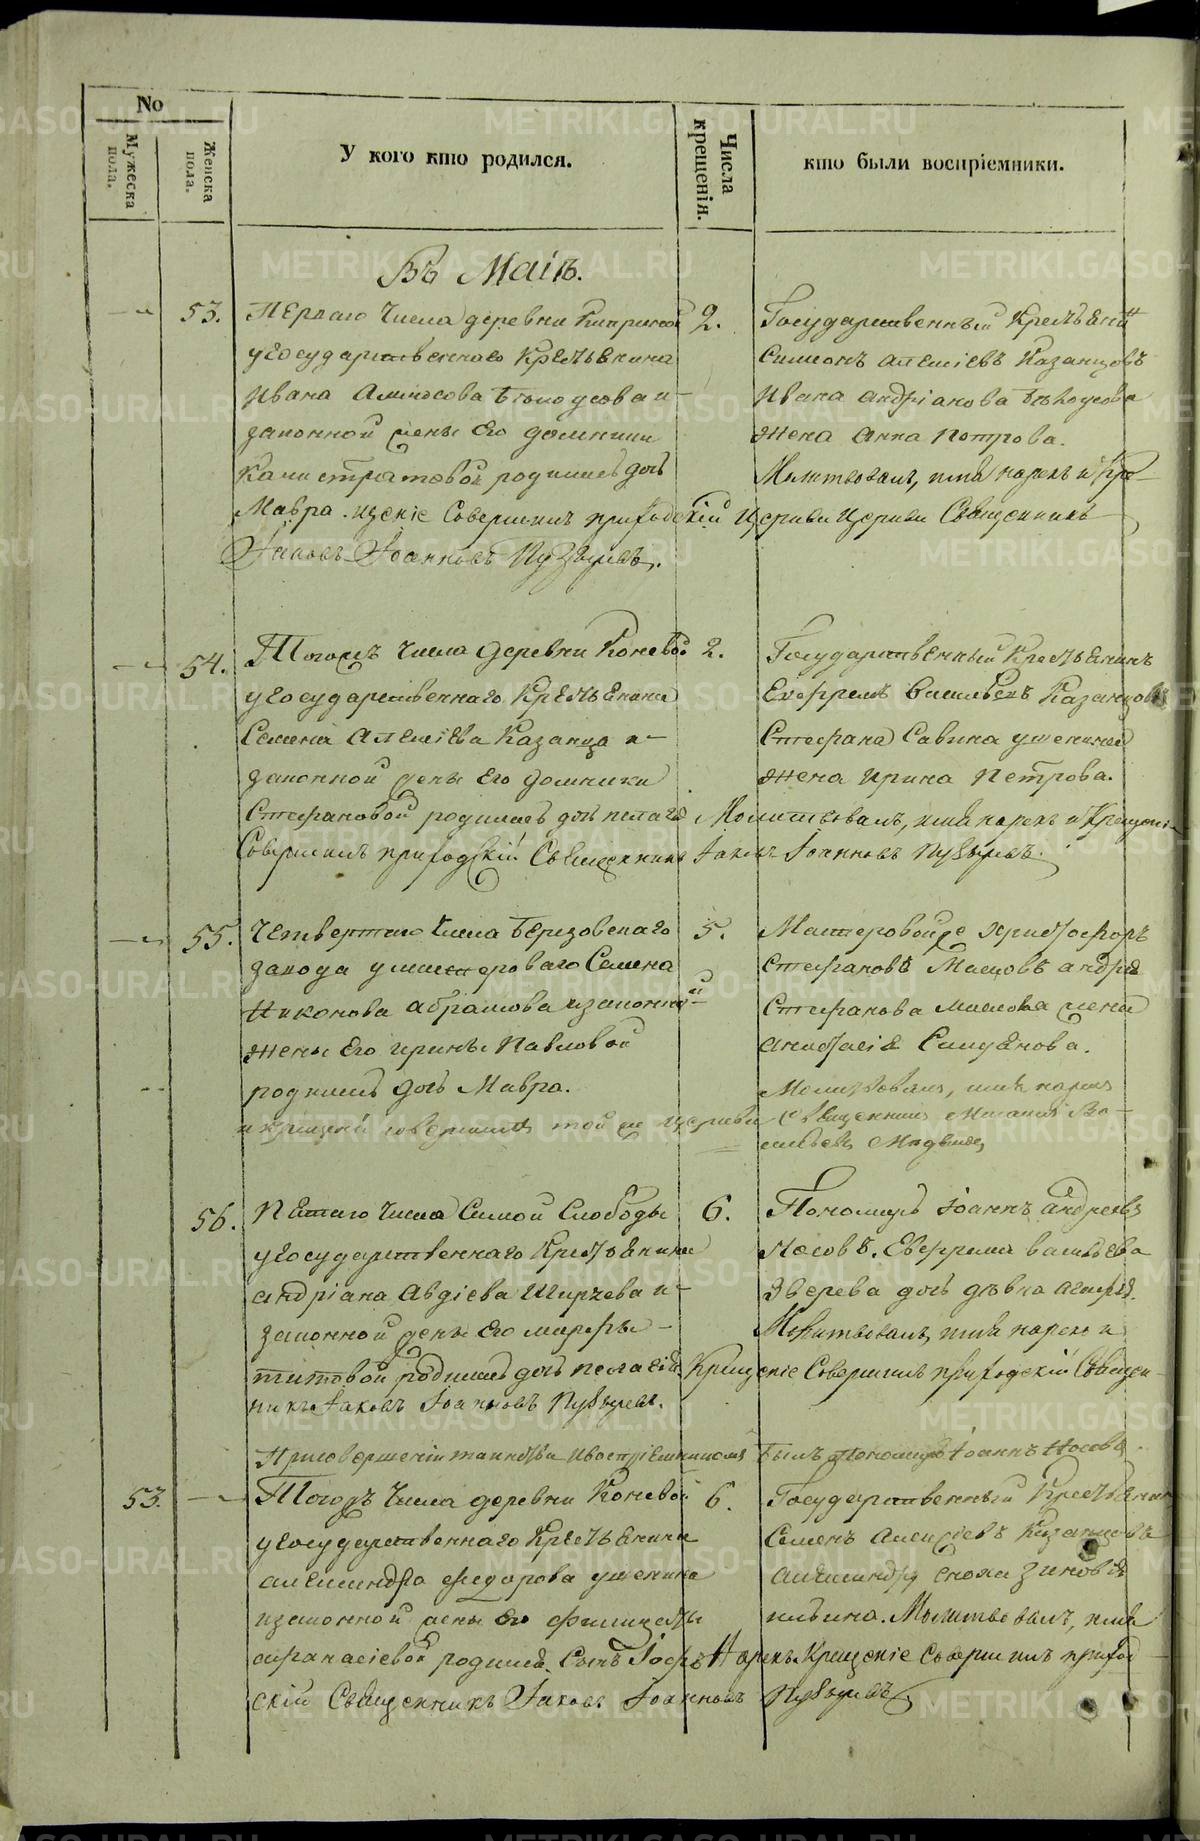 No
Мужеска пола.
Женска пола.
У кого кто родился.
Числа крещенія.
кто были воспріемники.
Въ Маіѣ.
53. Перваго Числа деревни 2. Государственный Крестьянинъ
у Государственнаго Крестьянина Симеонъ Алексіевъ Казанцовъ
Ивана Бѣлоусова и Ивана Андріанова Бѣлоусова
законной жены Его Домники жена Анна Петрова.
Калистратовой родилась дочь Молитвовалъ, имя нарекъ и Кре-
Мавра. щеніе Совершилъ приходскій Церкви Церкви Священникъ
Іаковъ Іоанновъ Пузыревъ.
54. Тогожъ Числа деревни Коневой 2. Государственный Крестьянинъ
у Государственнаго Крестьянина Ефремъ Васильевъ Казанцовъ
Семена Алексіева Казанца и Стефана Савина Ушенина
законной жены Его Домники жена Ирина Петрова.
Стефановой родилась дочь Молитвовалъ, имя нарекъ и Крещеніе
Совершилъ приходскій Священникъ Іаковъ Іоанновъ Пузыревъ.
55. Четвертаго Числа Березовскаго 5. Мастеровой Христофоръ
завода у мастероваго Семена Стефановъ Масловъ Андрея
Никонова Абрамова и законной Стефанова Маслова жена
жены Его Ирины Павловой Анастасія
родилась дочь Мавра. Молитвовалъ, имя нарекъ
и крещеніе совершилъ той же Церкви Священникъ Ва-
сильевъ
56. Пятаго Числа Самой Слободы 6. Пономарь Іоаннъ Андреевъ
у Государственнаго Крестьянина Носовъ. Ефрема Васильева
Андріана Авдіева и Зверева дочь дѣвка Агафія.
законной жены Его Марфы Молитвовалъ, имя нарекъ и
Титовой родилась дочь Пелагія. Крещеніе Совершилъ приходскій Священ-
никъ Іаковъ Іоанновъ Пузыревъ.
При совершеніи таинства и воспріемникомъ былъ пономарь Іоаннъ Носовъ.
53. Тогожъ Числа деревни Коневой 6. Государственный Крестьянинъ
у Государственнаго Крестьянина Семенъ Алексіевъ Казанцовъ
Александра Федорова Ушенина Александра сноха Зиновія
и законной жены Его Фелицаты Ильина. Молитвовалъ, имя
Афанасіевой родился Сынъ Іосифъ Нарекъ Крещеніе Совершилъ приход-
скій Священникъ Іаковъ Іоанновъ Пузыревъ